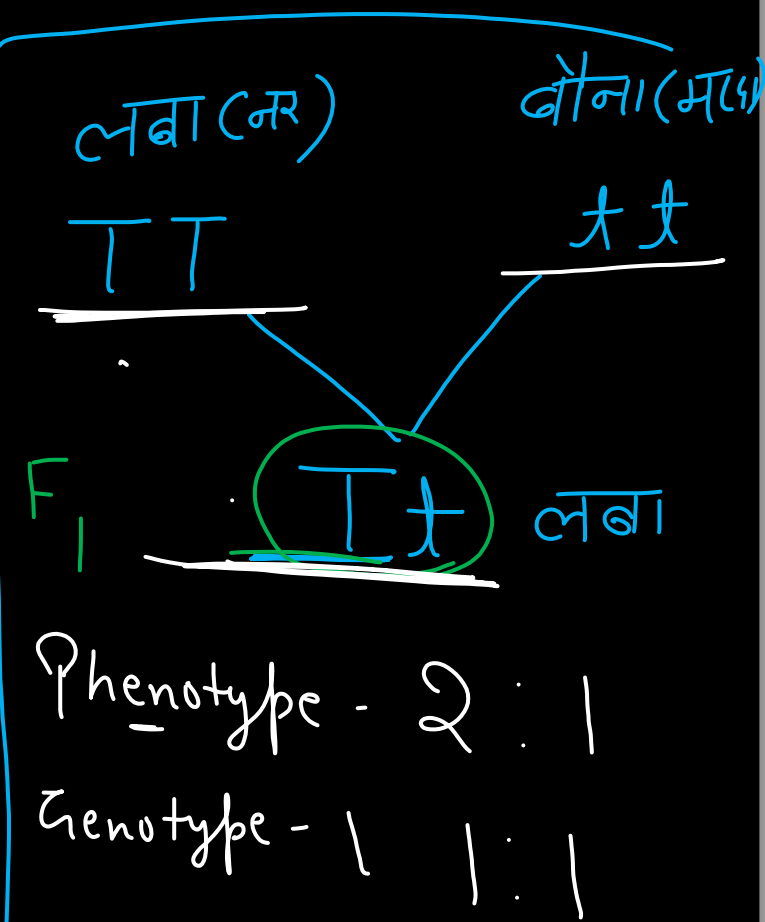 लबा (नर) बौना (मादा)
TT tt
F1 Tt लबा
Phenotype - 2 : 1
Genotype - 1 1 : 1